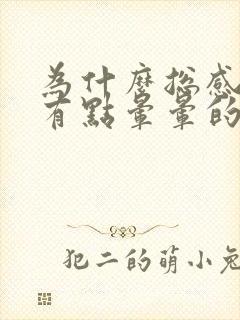 為什麼總感
有點暈暈的
犯二的萌小兔